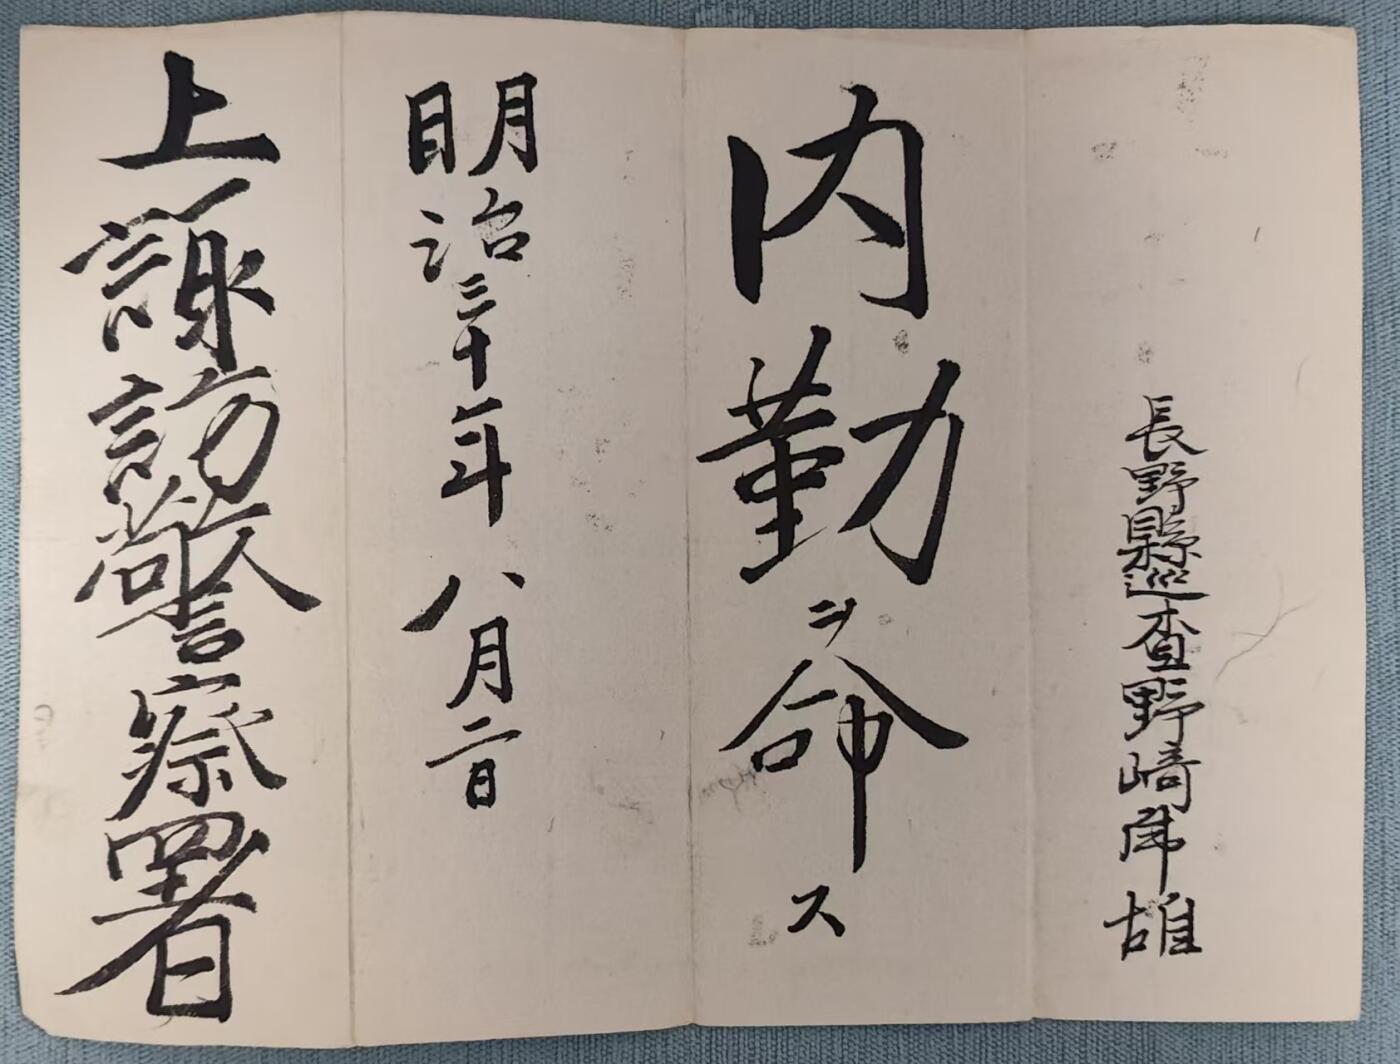 長野縣巡査野崎乕雄
内勤ヲ命ス
明治三十年八月二日
上諏訪警察署